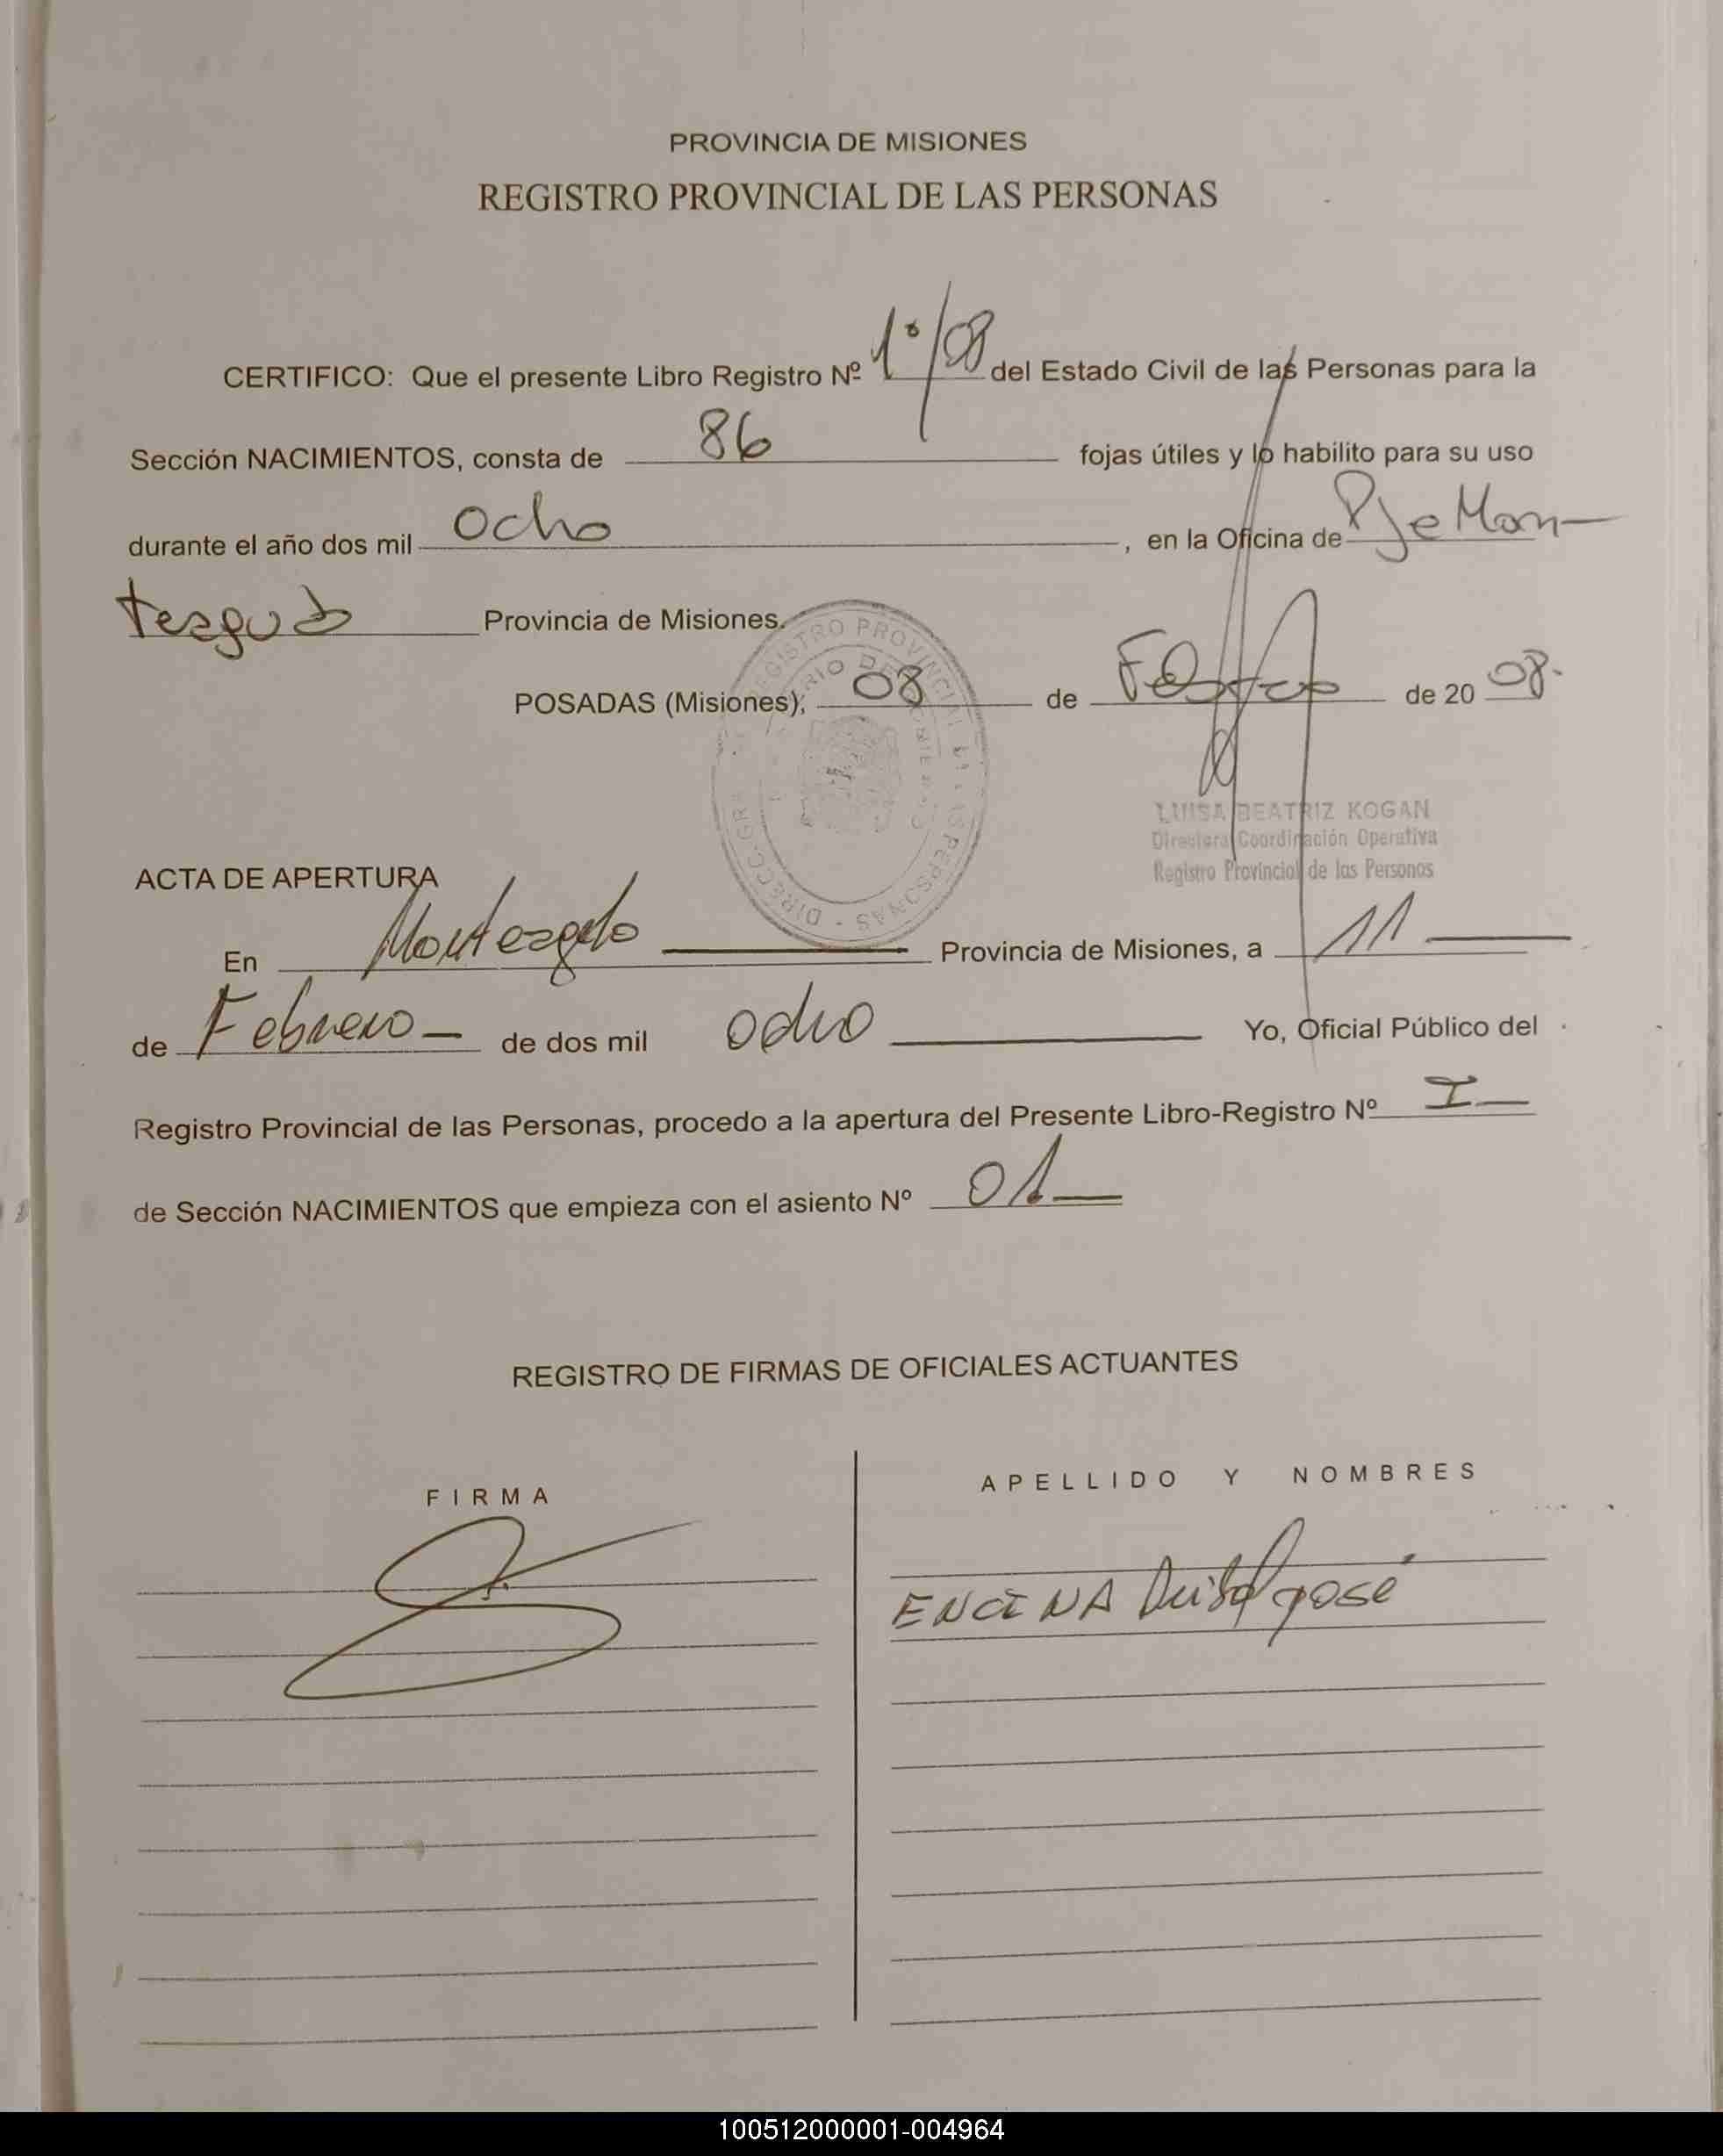 PROVINCIA DE MISIONES
REGISTRO PROVINCIAL DE LAS PERSONAS
CERTIFICO: Que el presente Libro Registro Nº 1º/08 del Estado Civil de las Personas para la
Sección NACIMIENTOS, consta de 86 fojas útiles y lo habilito para su uso
durante el año dos mil ocho, en la Oficina de Pje Mon-
teagudo Provincia de Misiones.
POSADAS (Misiones), 08 de Febrero de 2008.
LUISA BEATRIZ KOGAN
Directora Coordinación Operativa
Registro Provincial de las Personas
ACTA DE APERTURA
En Monteagudo Provincia de Misiones, a 11
de Febrero de dos mil ocho Yo, Oficial Público del
Registro Provincial de las Personas, procedo a la apertura del Presente Libro-Registro Nº I
de Sección NACIMIENTOS que empieza con el asiento Nº 01
REGISTRO DE FIRMAS DE OFICIALES ACTUANTES
FIRMA
APELLIDO Y NOMBRES
ENCINA José
100512000001-004964